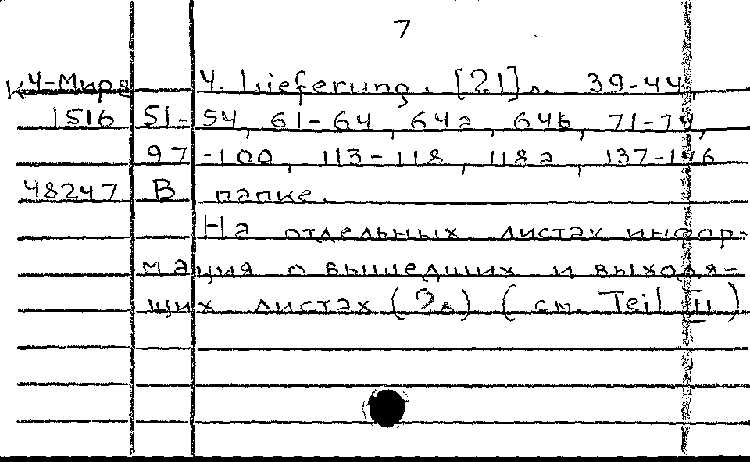 7
К4-Мира 4. Lieferung. [21] л. 39-44,
1516 51-54, 61-64, 64a, 64b, 71-74,
97-100, 113-118, 118a, 137-146
48247 В папке.
На отдельных листах инфор-
мация о вышедших и выходя-
щих листах (2л) (см. Teil II)